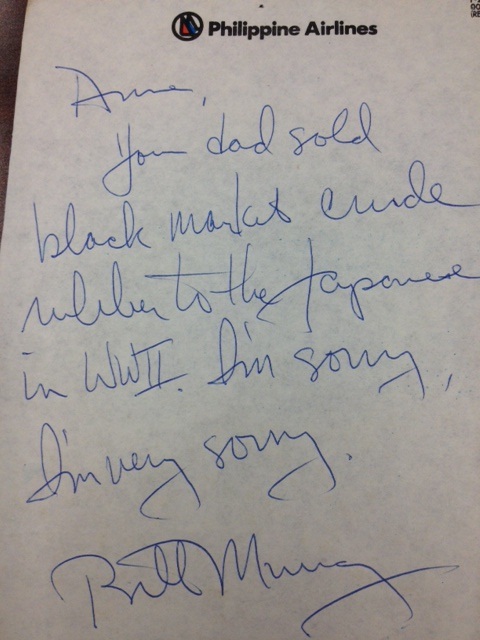 Philippine Airlines
Anne,
Your dad sold
black market crude
rubber to the Japanese
in WWII. I'm sorry,
I'm very sorry.
Bill Murray